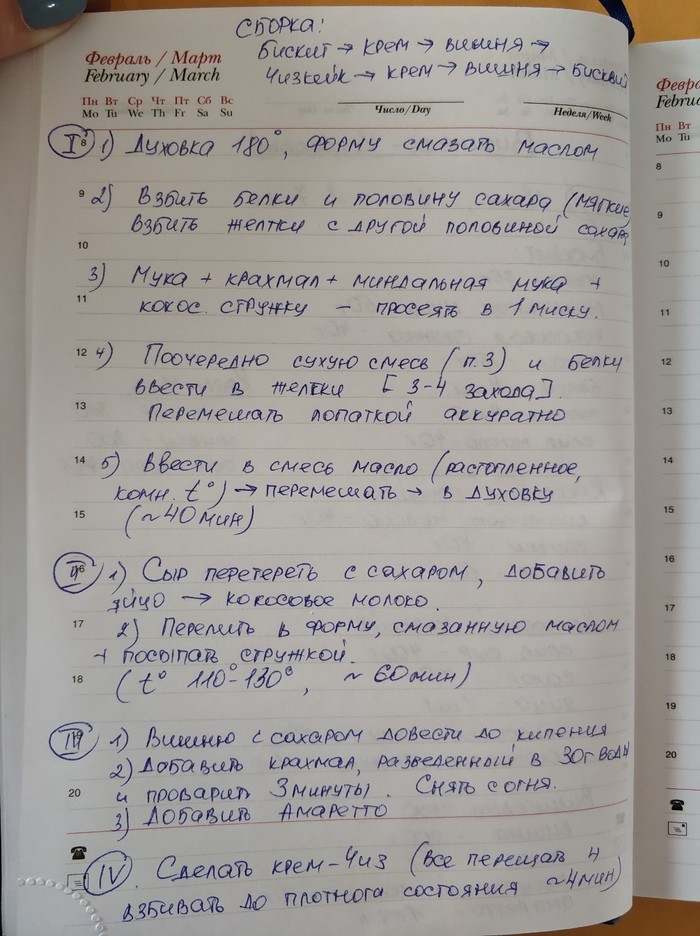 СБОРКА:
Бисквит → крем → вишня →
Чизкейк → крем → вишня → бисквит
Февраль / Март
February / March
Пн Вт Ср Чт Пт Сб Вс
Mo Tu We Th Fr Sa Su
Число/Day
Неделя/Week
I 8 1) Духовка 180°, форму смазать маслом
9 2) Взбить белки и половину сахара (мягкие)
взбить желтки с другой половиной сахара
10
3) Мука + крахмал + миндальная мука +
11 кокос. стружку – просеять в 1 миску.
12 4) Поочередно сухую смесь (п.3) и белки
ввести в желтки [3-4 захода].
13 Перемешать лопаткой аккуратно
14 5) Ввести в смесь масло (растопленное,
комн. t°) → перемешать → в духовку
15 (~40 мин)
II 16 1) Сыр перетереть с сахаром, добавить
яйцо → кокосовое молоко.
17 2) Перелить в форму, смазанную маслом
+ посыпать стружкой.
18 (t° 110°-130°, ~60мин)
III 19 1) Вишню с сахаром довести до кипения
2) Добавить крахмал, разведенный в 30г воды
20 и проварить 3 минуты. Снять с огня.
3) Добавить Амаретто
IV. Сделать крем-чиз (все перещать и
взбивать до плотного состояния ~4мин)
Февра
Februa
Пн Вт
Mo Tu
8
9
10
11
12
13
14
15
16
17
18
19
20